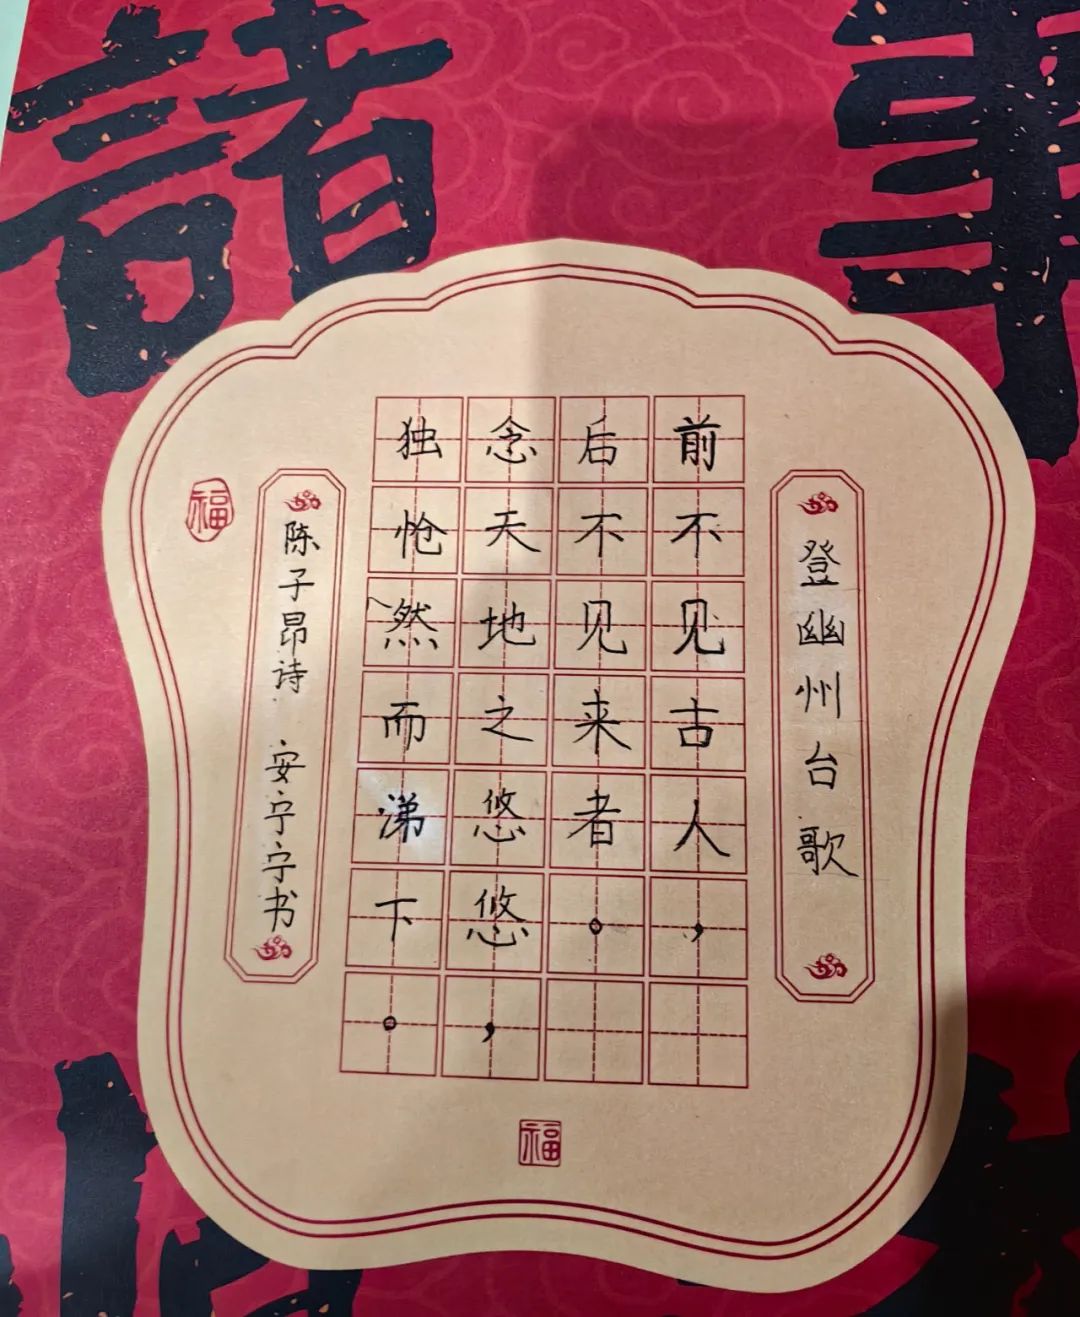 諸事
登幽州台歌
前不见古人，
后不见来者。
念天地之悠悠，
独怆然而涕下。
陈子昂诗 安宁宁书
福
福